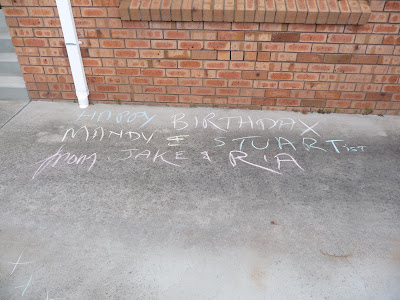 HAPPY BIRTHDAY
MANDY & STUART
from JAKE & RIA